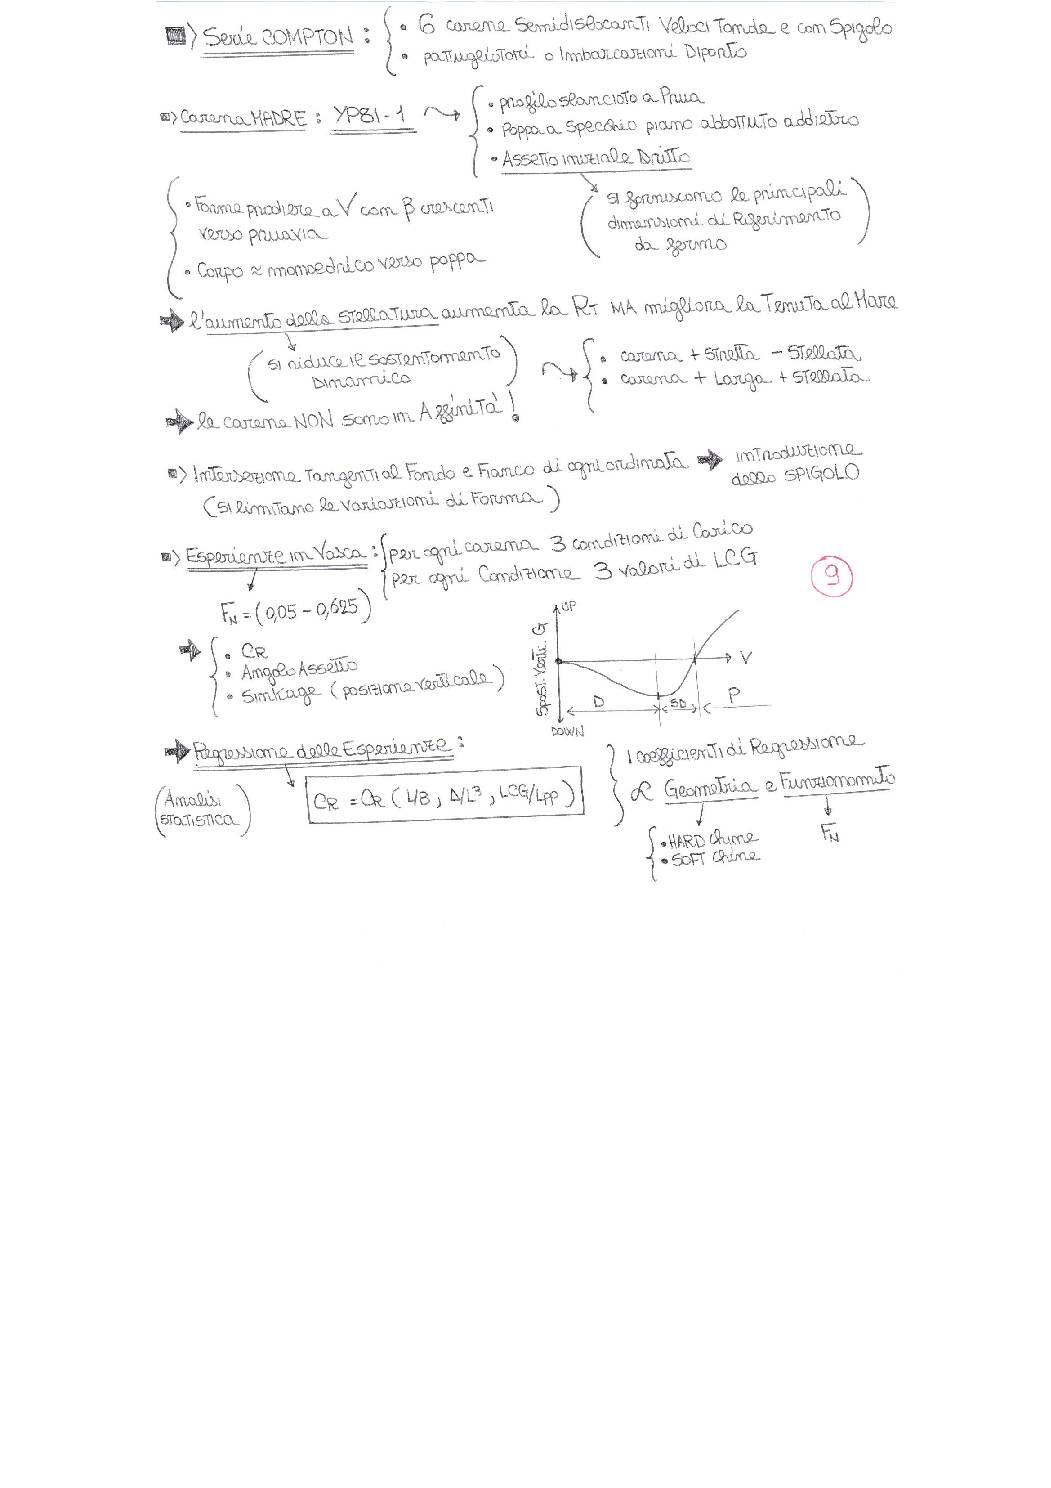 ) Serie COMPTON : { • 6 carene Semidislocanti Veloci Tonde e con Spigolo
• pattugliatori o Imbarcazioni Diporto
) Carena MADRE : YP81-1 { • profilo slanciato a Prua
• Poppa a Specchio piano abbattuto addietro
• Assetto iniziale Dritto
( si forniscono le principali
dimensioni di Riferimento
da fermo )
{ • Forme prodiere a V con β crescenti
verso pruavia
• Corpo ≈ monoedrico verso poppa
➡ l'aumento della stellatura aumenta la RT MA migliora la Tenuta al Mare
( si riduce il sostentamento
Dinamico )
{ • carena + stretta - stellata
• carena + larga + stellata
➡ le carene NON sono in Affinità !
) Intersezione Tangenti al Fondo e Fianco di ogni ordinata ➡ introduzione
dello SPIGOLO
(si limitano le variazioni di Forma )
) Esperienze in Vasca : { per ogni carena 3 condizioni di Carico
per ogni Condizione 3 valori di LCG
9
FN = (0,05 - 0,625)
➡ { • CR
• Angolo Assetto
• Sinkage ( posizione verticale )
UP
Spost. Verti. G
V
D
SD
P
DOWN
➡ Regressione delle Esperienze :
(Analisi
statistica)
CR = CR ( L/B , Δ/L³ , LCG/Lpp )
} I coefficienti di Regressione
α Geometria e Funzionamnto
{ • HARD chine
• SOFT chine
FN